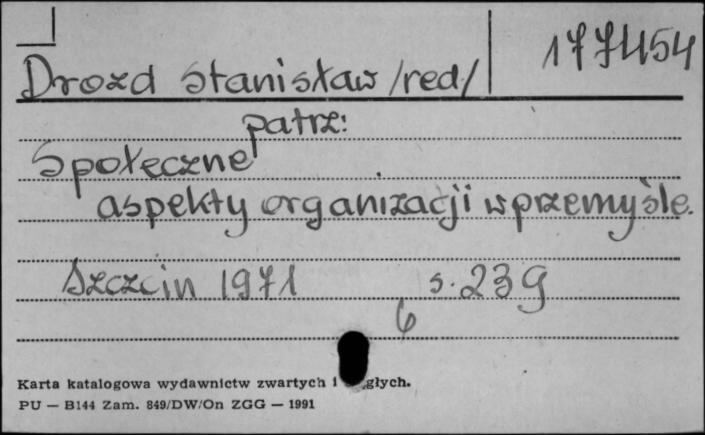 Drozd Stanisław /red/
177454
patrz:
Społeczne
aspekty organizacji w przemyśle.
Szczcin 1971 s. 239
6
Karta katalogowa wydawnictw zwartych i głych.
PU — B144 Zam. 849/DW/On ZGG — 1991